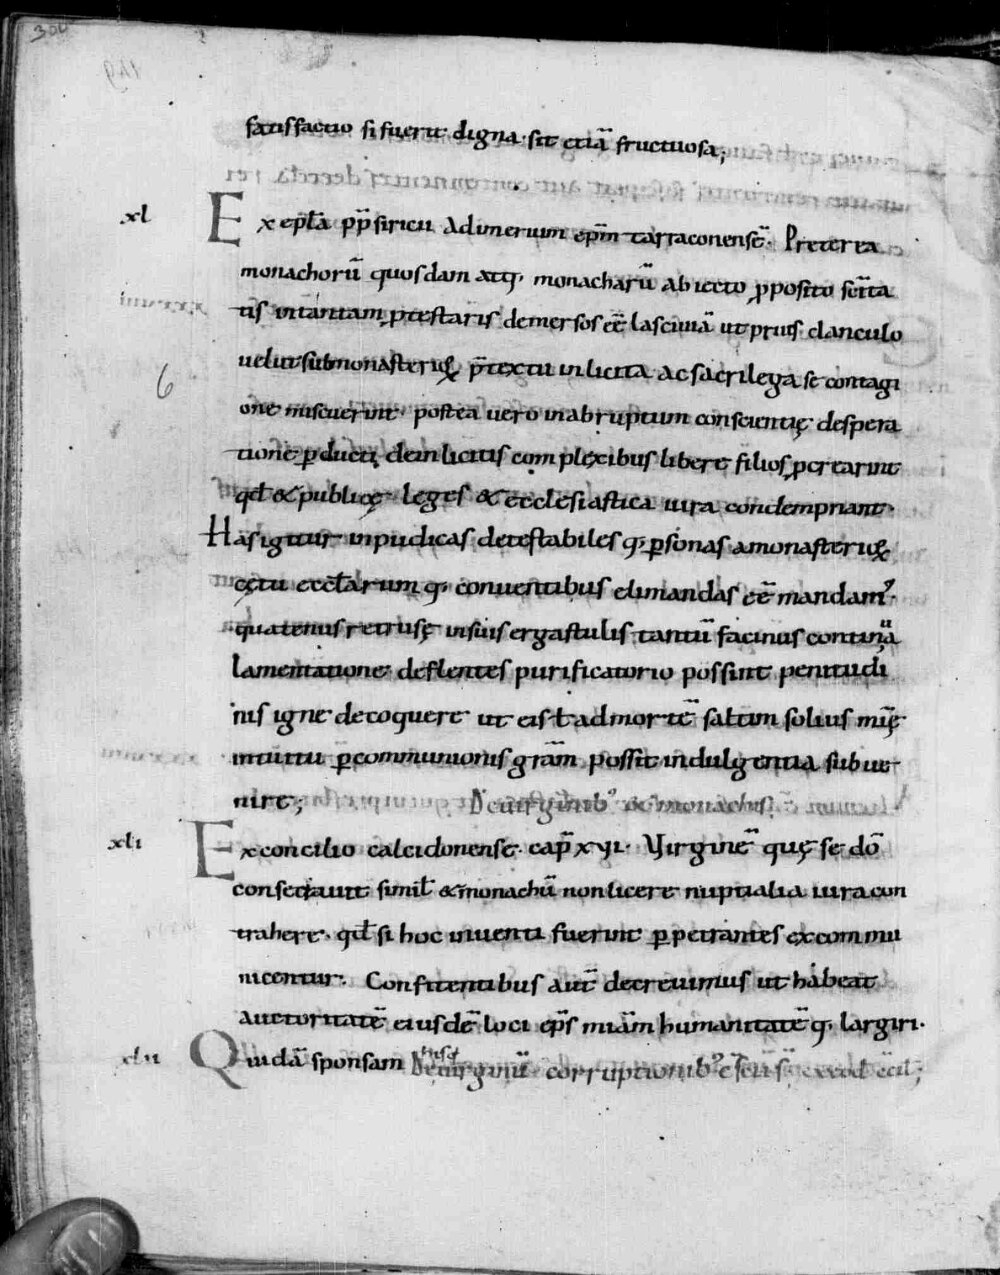 300
149
satisfactio si fuerit digna · sit etiā fructuosa;
xl Ex epła pp̄ siricii Adimerium ep̄m tarraconensē. Preterea
monachorū quosdam atq; monacharū abiecto p̱posito sc̄ita
tis intantam p̱testaris demersos eē lasciuiā ut prius clanculo
uelut submonasteriorꝝ p̄textu inlicita ac sacrilega se contagi
6
one miscuerint · postea uero inabruptum conscientię despera
tione p̱ducti deinlicitis complexibus libere filios p̱crearint
qđ & publicę leges & ecclesiastica iura condempnant ·
Has igitur inpudicas detestabiles q; p̱sonas amonasteriorꝝ
cętu ęccłarum q; conuentibus eliminandas eē mandam' ·
quatenus retrusę insuis ergastulis tantū facinus continua
lamentatione deflentes purificatorio possint penitudi
nis igne decoquere ut eis ł admortē saltim solius mię
intuitu p̱communionis gr̄am possit indulgentia subue
nire; De uirginib' & monachis
xli Ex concilio calcidonense · cap̄ xvi · Virginē quę se dō
consecrauit similł & monachū non licere nuptialia iura con
trahere · qđ si hoc inuenti fuerint p̱petrantes excommu
nicentur · Confitentibus aut̄ decreuimus ut habeat
auctoritatē eiusdē loci ep̄s miam humanitatē q; largiri ·
xlii Quidā sponsam De uirginū corruptionib'